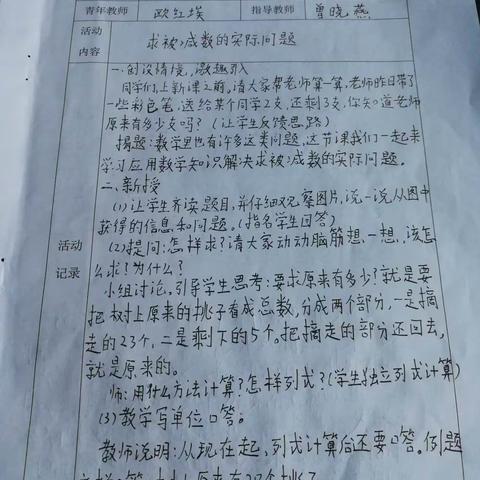 青年教师 欧红埃 指导教师 曾晓燕
活动内容 求被减数的实际问题
一.创设情境,激趣引入
同学们,上新课之前,请大家帮老师算一算,老师昨日带了
一些彩色笔,送给某个同学2支,还剩3支,你知道老师
原来有多少支吗?(让学生反馈思路)
揭题:数学里也有许多这类问题,这节课我们一起来
学习应用数学知识解决求被减数的实际问题.
二、新授
(1)让学生齐读题目,并仔细观察图片,说一说从图中
获得的信息和问题。(指名学生回答)
(2)提问:怎样求?请大家动动脑筋想一想,该怎
么求?为什么?
活动记录
小组讨论,引导学生思考:要求原来有多少?就是要
把树上原来的桃子看成总数,分成两个部分,一是摘
走的23个,二是剩下的5个。把摘走的部分还回去,
就是原来的。
师:用什么方法计算?怎样列式?(学生独立列式计算)
(3)教学写单位口答。
教师说明:从现在起,列式计算后还要口答。例题